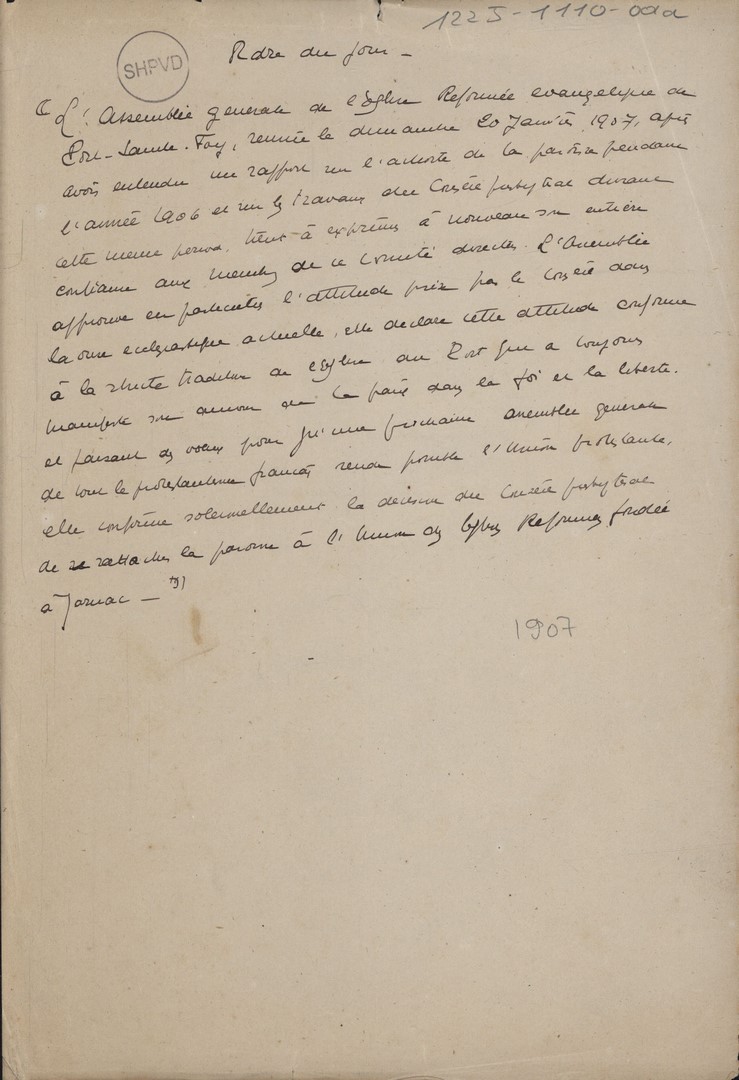 122S-1110-00a
SHPVD
Ordre du jour -
"L'Assemblée generale de l'Eglise Reformée evangelique de
Port-Sainte-Foy, reunie le dimanche 20 Janvier 1907, après
avoir entendu un rapport sur l'activité de la paroisse pendant
l'année 1906 et sur les travaux du Conseil presbyteral durant
cette meme periode, tient à exprimer à nouveau son entiere
confiance aux membres de ce Comité directeur. L'Assemblée
approuve en particulier l'attitude prise par le Conseil dans
la crise ecclesiastique actuelle, elle declare cette attitude conforme
à la stricte tradition de l'Eglise du Port qui a toujours
manifesté son amour de la paix dans la foi et la liberté.
et faisant des voeux pour qu'une prochaine assemblée generale
de tout le protestantisme français rende possible l'Union protestante,
elle confirme solennellement la decision du Conseil presbyteral
de rattacher la paroisse à l'Union des Eglises Reformées fondée
à Jarnac - "
1907